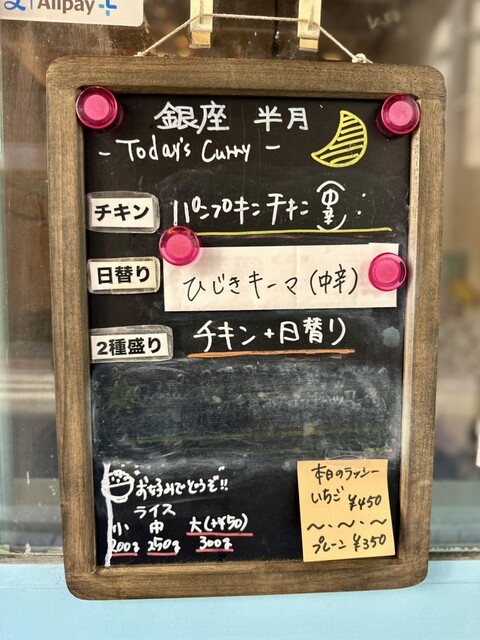 Alipay
銀座 半月
- Today's Curry -
チキン パンプキンチキン (中辛)
日替り ひじきキーマ (中辛)
2種盛り チキン+日替り
お好みでどうぞ!!
ライス
小 中 大(+¥50)
200g 250g 300g
本日のラッシー
いちご ¥450
〜・〜・〜
プレーン ¥350